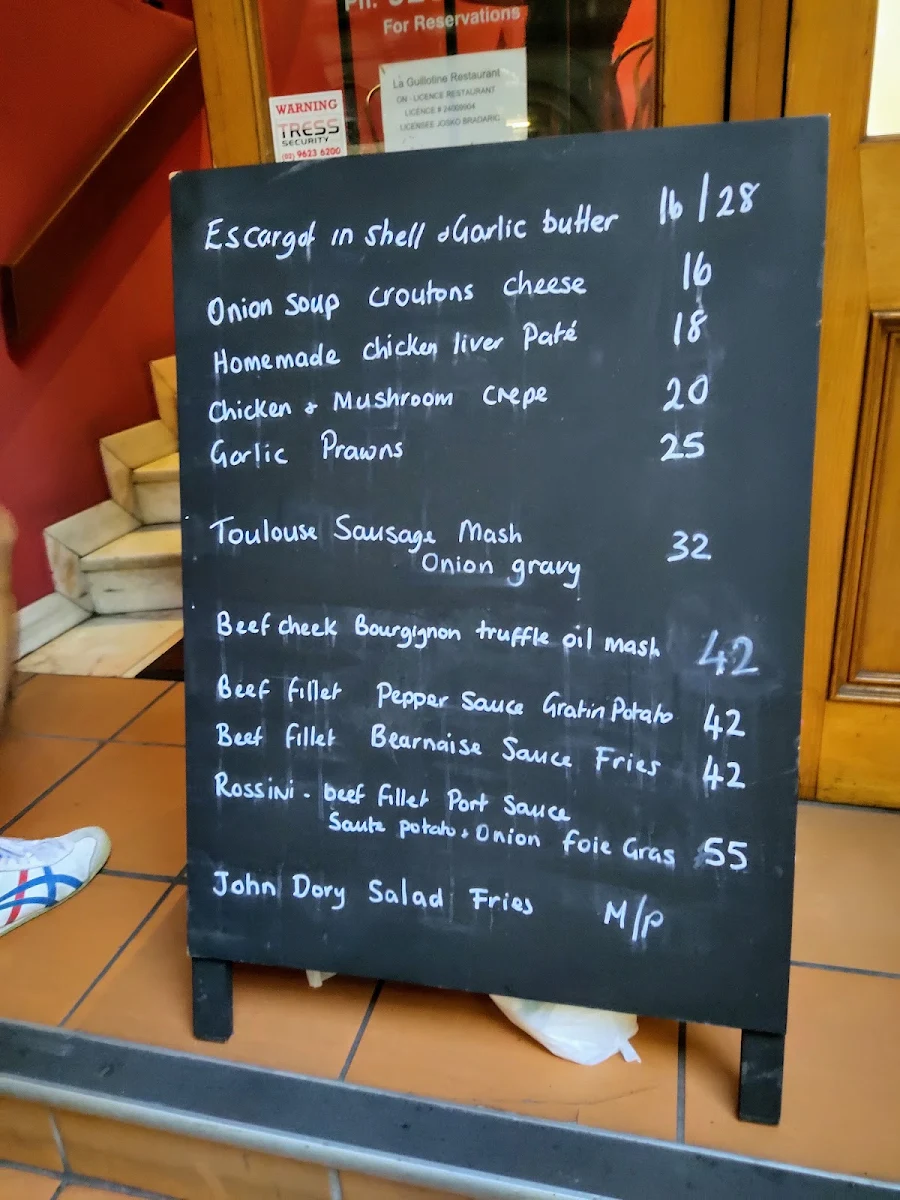 For Reservations
La Guillotine Restaurant
ON - LICENCE RESTAURANT
LICENCE # 24009904
LICENSEE JOSKO BRADARIC
WARNING
TRESS
SECURITY
(02) 9623 6200
Escargot in shell & Garlic butter 16 / 28
Onion Soup croutons cheese 16
Homemade chicken liver Paté 18
Chicken & Mushroom Crepe 20
Garlic Prawns 25
Toulouse Sausage Mash
Onion gravy 32
Beef cheek Bourgignon truffle oil mash 42
Beef fillet Pepper Sauce Gratin Potato 42
Beef fillet Bearnaise Sauce Fries 42
Rossini - beef fillet Port Sauce
Saute potato & Onion foie Gras 55
John Dory Salad Fries M/P